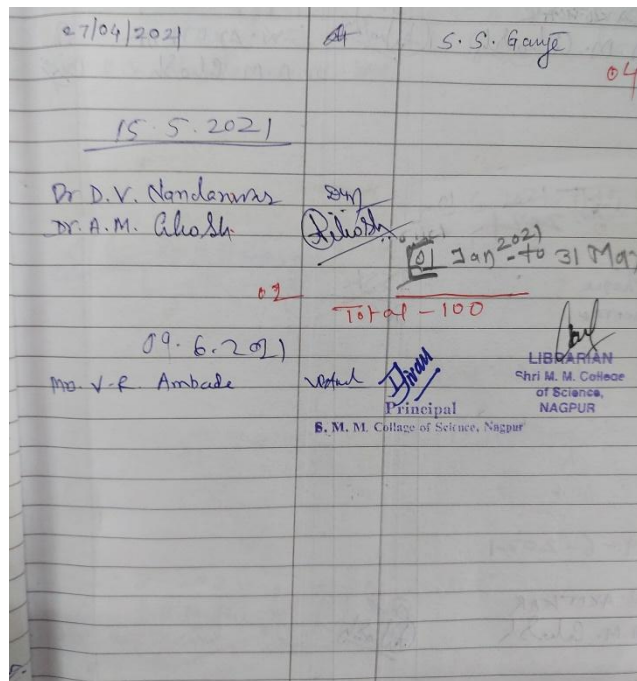 27/04/2021 S. S. Ganje
04
15.5.2021
Dr D.V. Nandanwar
Dr. A.M. Ghosh
01 Jan 2021 - to 31 May
02
Total - 100
09.6.2021
V-R. Ambade
LIBRARIAN
Shri M. M. College
of Science,
NAGPUR
Principal
S. M. M. Collage of Science, Nagpur